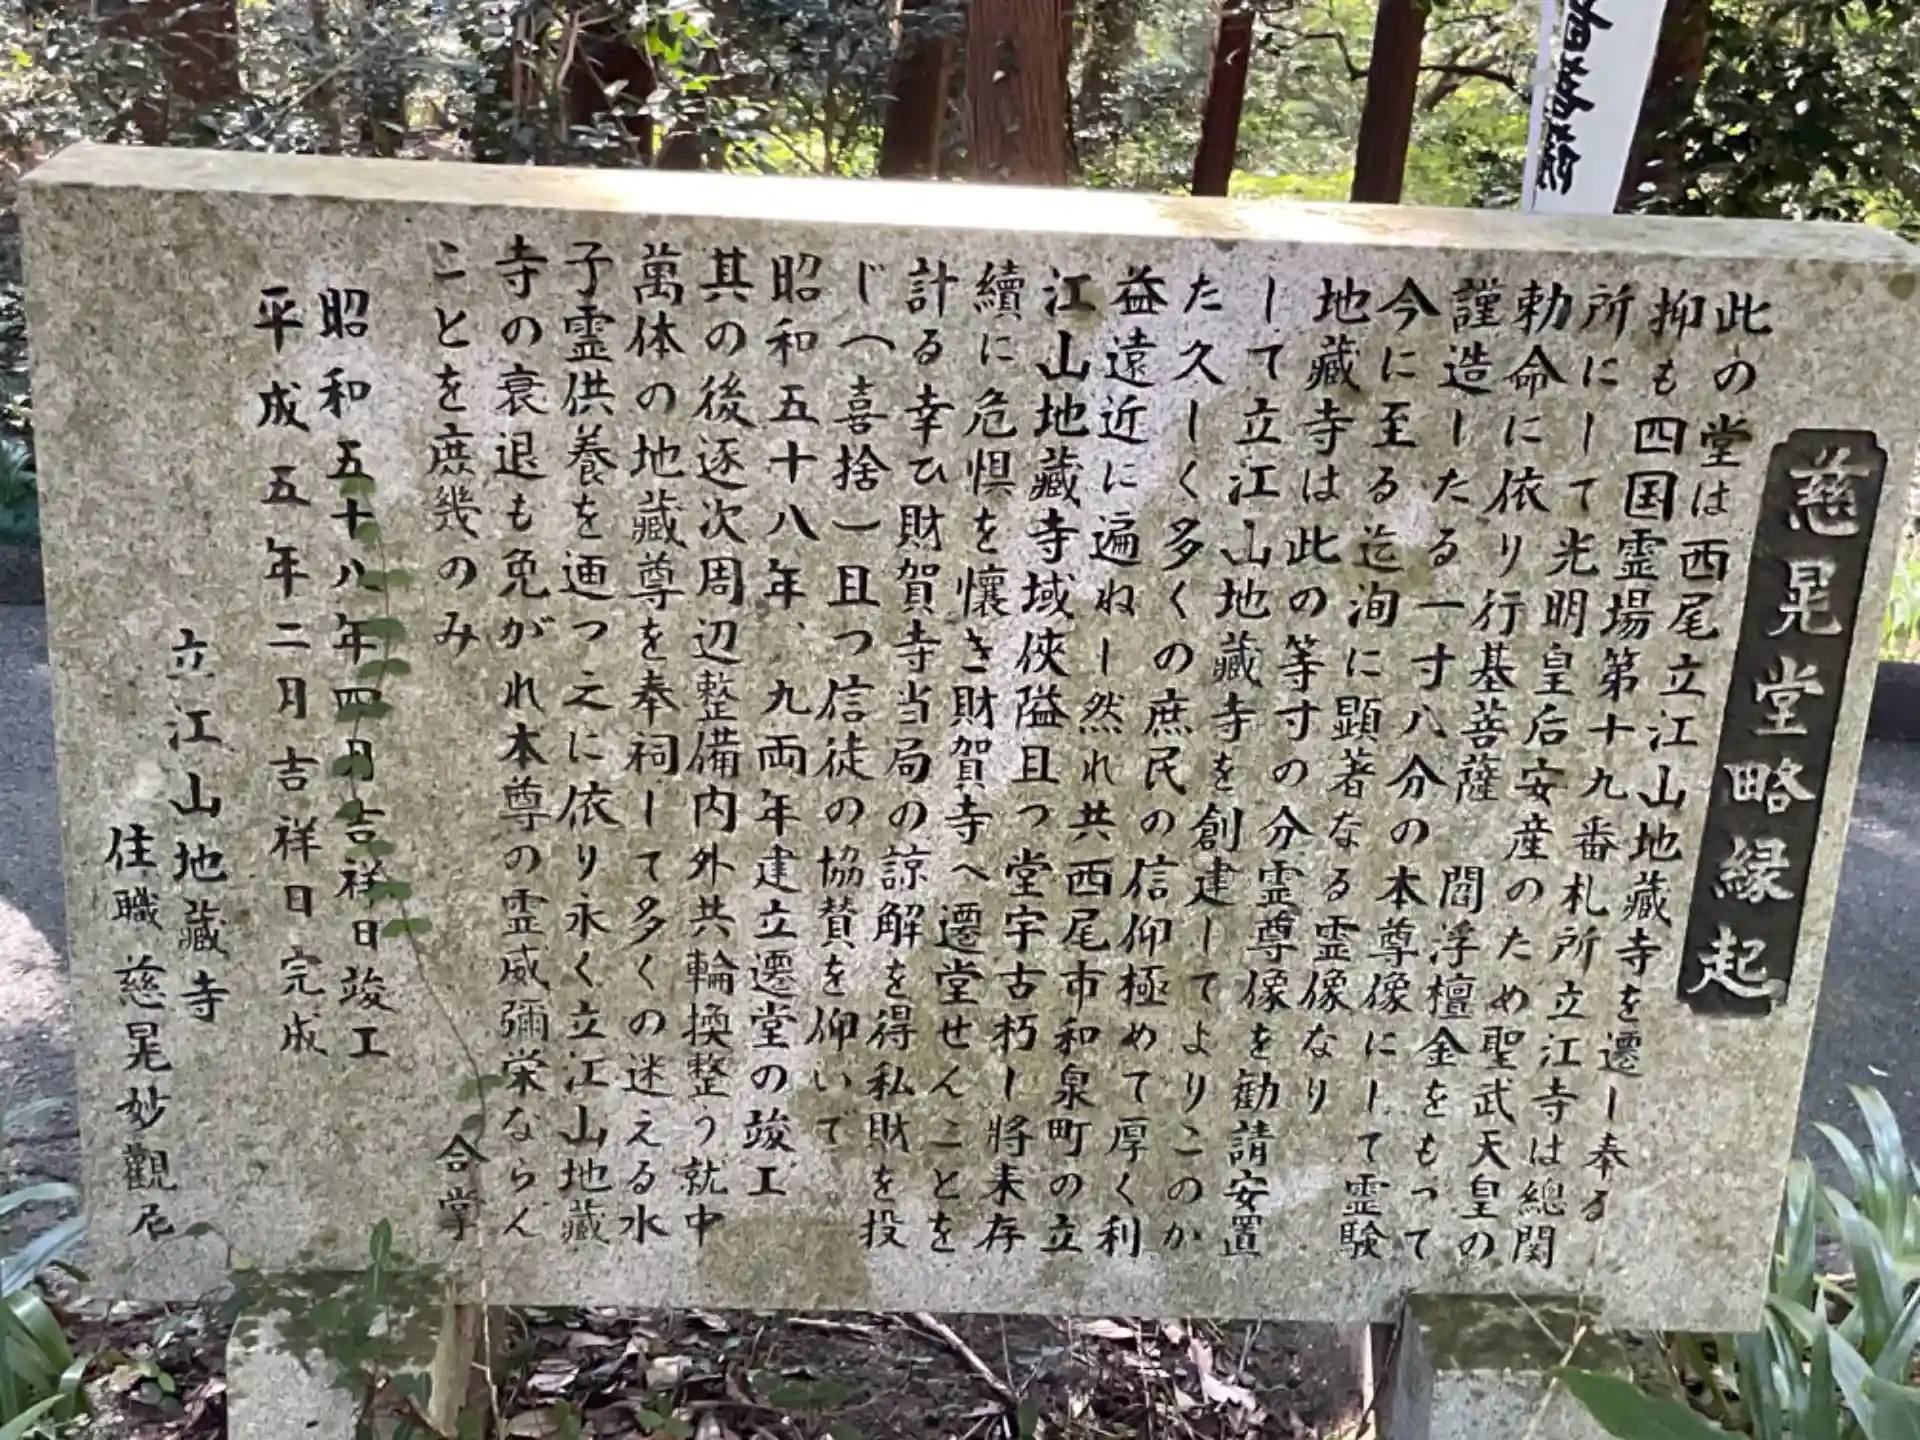 慈晃堂略縁起
此の堂は西尾立江山地藏寺を遷し奉る
抑も四国霊場第十九番札所立江寺は總関
所にして光明皇后安産のため聖武天皇の
勅命に依り行基菩薩 閻浮檀金をもって
謹造したる一寸八分の本尊像にして霊験
今に至る迄洵に顕著なる霊像なり
地藏寺は此の等寸の分霊尊像を勧請安置
して立江山地藏寺を創建してよりこのか
た久しく多くの庶民の信仰極めて厚く利
益遠近に遍ねし然れ共西尾市和泉町の立
江山地藏寺域俠隘且つ堂宇古朽し將来存
續に危惧を懐き財賀寺へ遷堂せんことを
計る幸ひ財賀寺当局の諒解を得私財を投
じ(喜捨)且つ信徒の協賛を仰いで
昭和五十八年、九両年建立遷堂の竣工
其の後逐次周辺整備内外共輪換整う就中
萬体の地藏尊を奉祠して多くの迷える水
子霊供養を通つえに依り永く立江山地藏
寺の衰退も免がれ本尊の霊威彌栄ならん
ことを庶幾のみ 合掌
昭和五十八年四月吉祥日竣工
平成五年二月吉祥日完成
立江山地藏寺
住職慈晃妙觀尼